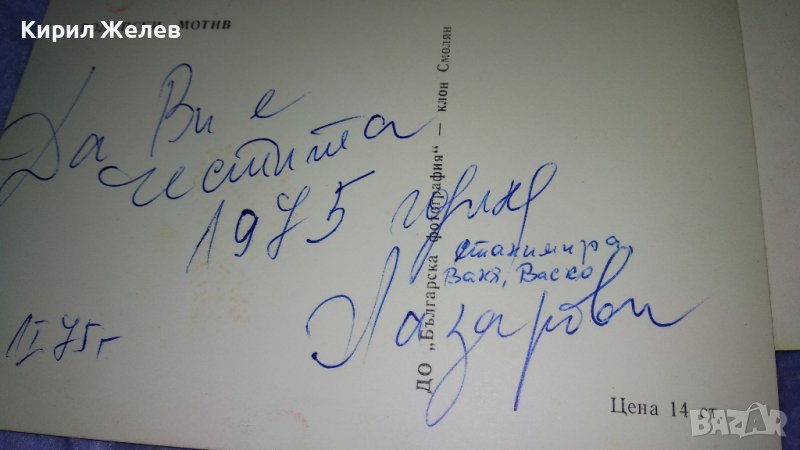 Кирил Желев
МОТИВ
Да Ви е
честита
1975 година
Станимира,
Ваня, Васко
Лазарови
1 I 75 г
ДО „Българска фотография“ — клон Смолян
Цена 14 ст.
BAZAR